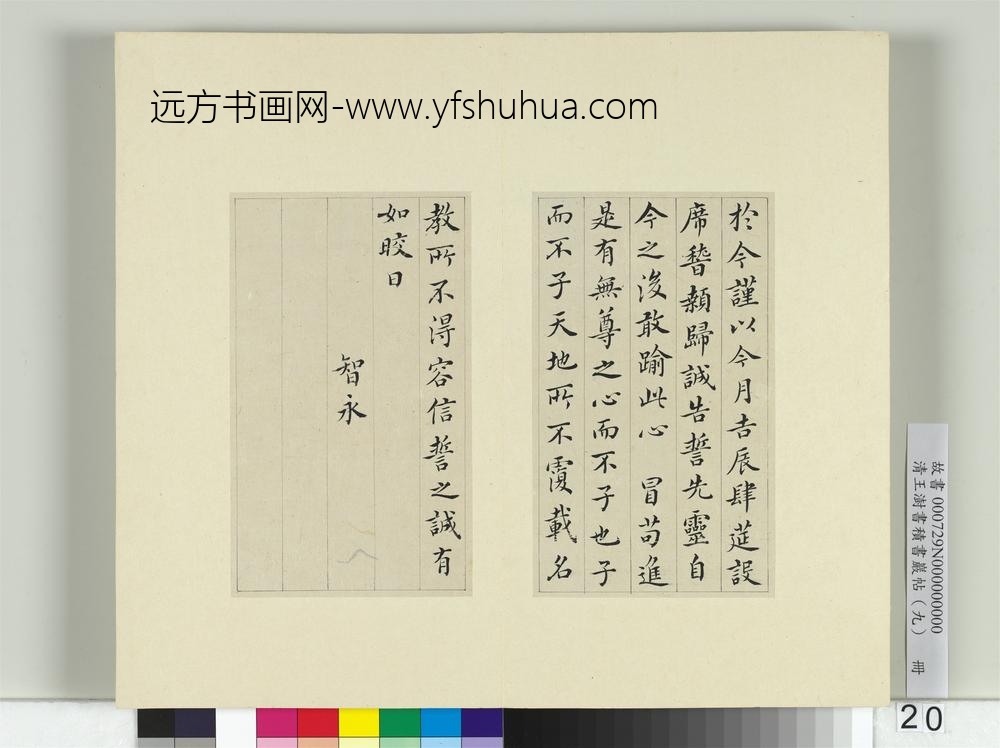 远方书画网-www.yfshuhua.com
於今謹以今月吉辰肆莚設
席稽顙歸誠告誓先靈自
今之後敢踰此心 冒苟進
是有無尊之心而不子也子
而不子天地所不覆載名
教所不得容信誓之誠有
如晈日
智永
故書 000729N000000000
清王澍書積書巖帖(九) 冊
20